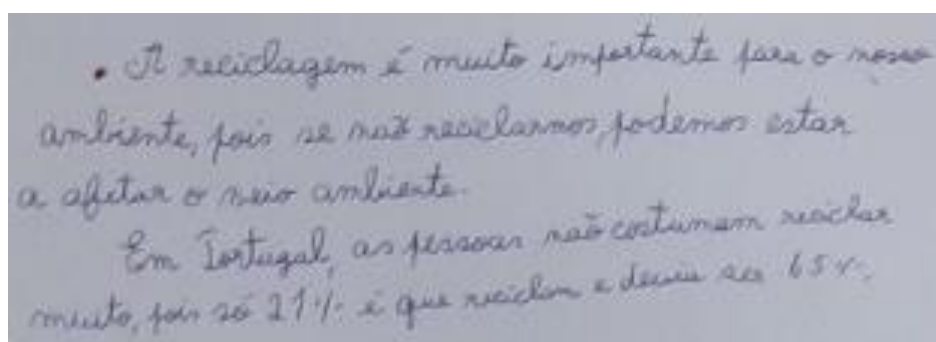 • A reciclagem é muito importante para o nosso
ambiente, pois se não reciclarmos, podemos estar
a afetar o meio ambiente.
Em Portugal, as pessoas não costumam reciclar
muito, pois só 21% é que reciclam e devia ser 65%.